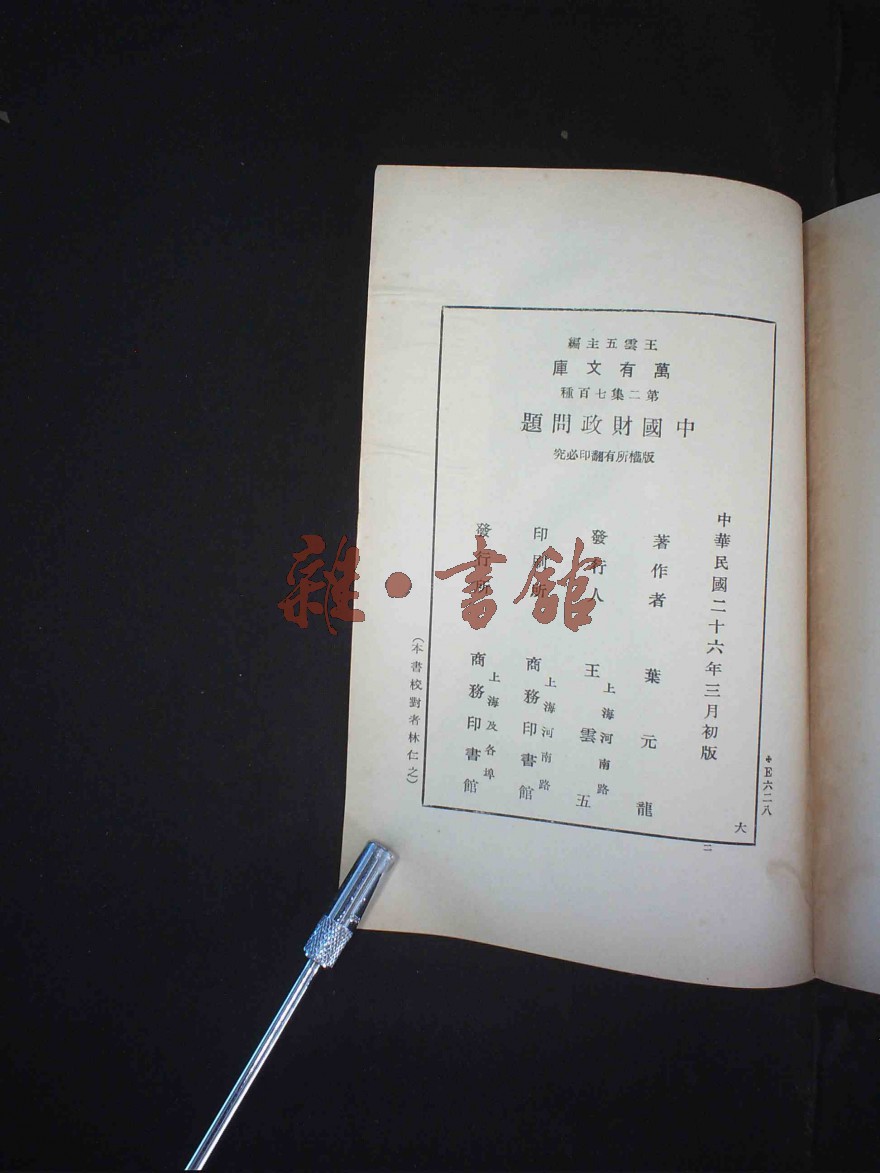 王雲五主編
萬有文庫
第二集七百種
中國財政問題
版權所有翻印必究
中華民國二十六年三月初版
著作者 葉元龍
發行人 王雲五
上海河南路
印刷所 商務印書館
上海河南路
發行所 商務印書館
上海及各埠
(本書校對者林仁之)
＊E六二八
大
二
雜·書館